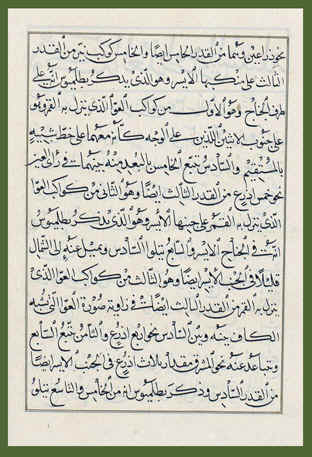 نحو ذراعين وهما من القدر الخامس ايضًا والخامس كوكب نير من القدر
الثالث على منكبها الايسر وهو الذى يذكر بطلميوس انّه على
طرف الجناح وهو الاول من كواكب العوّا الذى ينزل به القمر وهو
على جنوب الاثنين اللذين على الوجه كأنّه معهما على خطّ شبيه
بالمستقيم والسادس يتبع الخامس بالبعد منه بينهما فى رأى العين
نحو خمس اذرع من القدر الثالث ايضًا وهو الثانى من كواكب العوّا
الذى ينزل به القمر على جنبها الايسر وهو الذى يذكر بطلميوس
انّه فى الجناح الايسر والسابع يتلوا السادس ويميل عنه الى الشمال
قليلًا فى الجنب الايسر ايضًا وهو الثالث من كواكب العوّا الذى
ينزل به القمر من القدر الثالث ايضًا فى زاوية صورة العوّا التى تشبه
الكاف بينه وبين السادس نحو اربع اذرع والثامن يتبع السابع
ويتباعد عنه نحو المشرق مقدار ثلاث اذرع فى الجنب الايسر ايضًا
من القدر السادس وذكر بطلميوس انه من الخامس والتاسع يتلوا